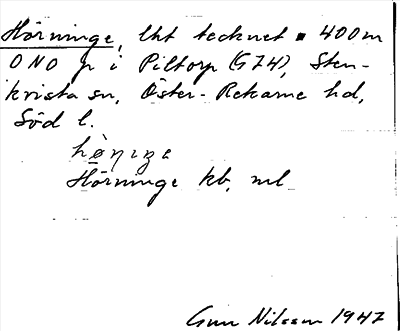 Hörninge, lht tecknet ▪ 400 m
ONO p i Piltorp (G74), Sten-
kvista sn, Öster-Rekarne hd,
Söd l.
Hörninge kb, ml
Gun Nilsson 1947